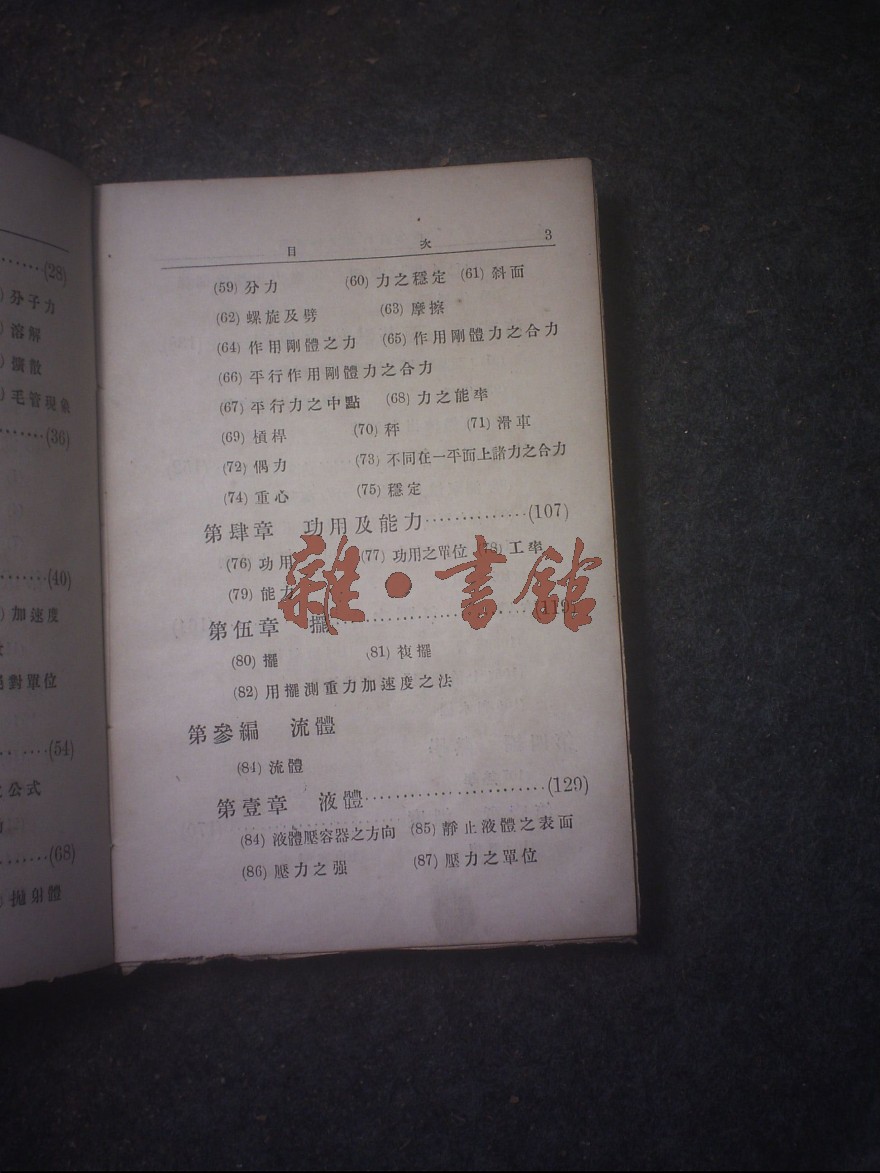 (28)
分子力
溶解
擴散
毛管現象
(36)
(40)
加速度
對單位
(54)
公式
(68)
拋射體
目 次 3
(59) 分力 (60) 力之穩定 (61) 斜面
(62) 螺旋及劈 (63) 摩擦
(64) 作用剛體之力 (65) 作用剛體力之合力
(66) 平行作用剛體力之合力
(67) 平行力之中點 (68) 力之能率
(69) 槓桿 (70) 秤 (71) 滑車
(72) 偶力 (73) 不同在一平面上諸力之合力
(74) 重心 (75) 穩定
第肆章 功用及能力··············(107)
(76) 功用 (77) 功用之單位 (78) 工率
(79) 能力
雜·書館
第伍章 擺······················(119)
(80) 擺 (81) 複擺
(82) 用擺測重力加速度之法
第參編 流體
(84) 流體
第壹章 液體······················(129)
(84) 液體壓容器之方向 (85) 靜止液體之表面
(86) 壓力之强 (87) 壓力之單位